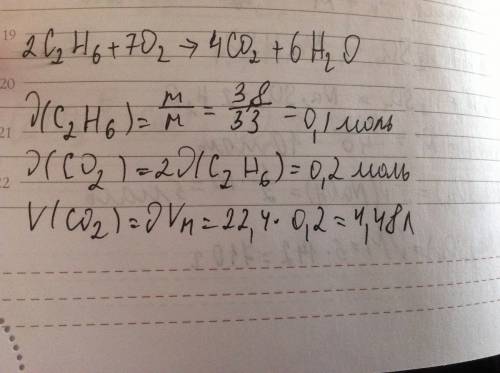 19
2C₂H₆+7O₂→4CO₂+6H₂O
20
ν(C₂H₆)=m/M=3,8/33=0,1моль
21
ν(CO₂)=2ν(C₂H₆)=0,2моль
22
V(CO₂)=νVм=22,4·0,2=4,48л